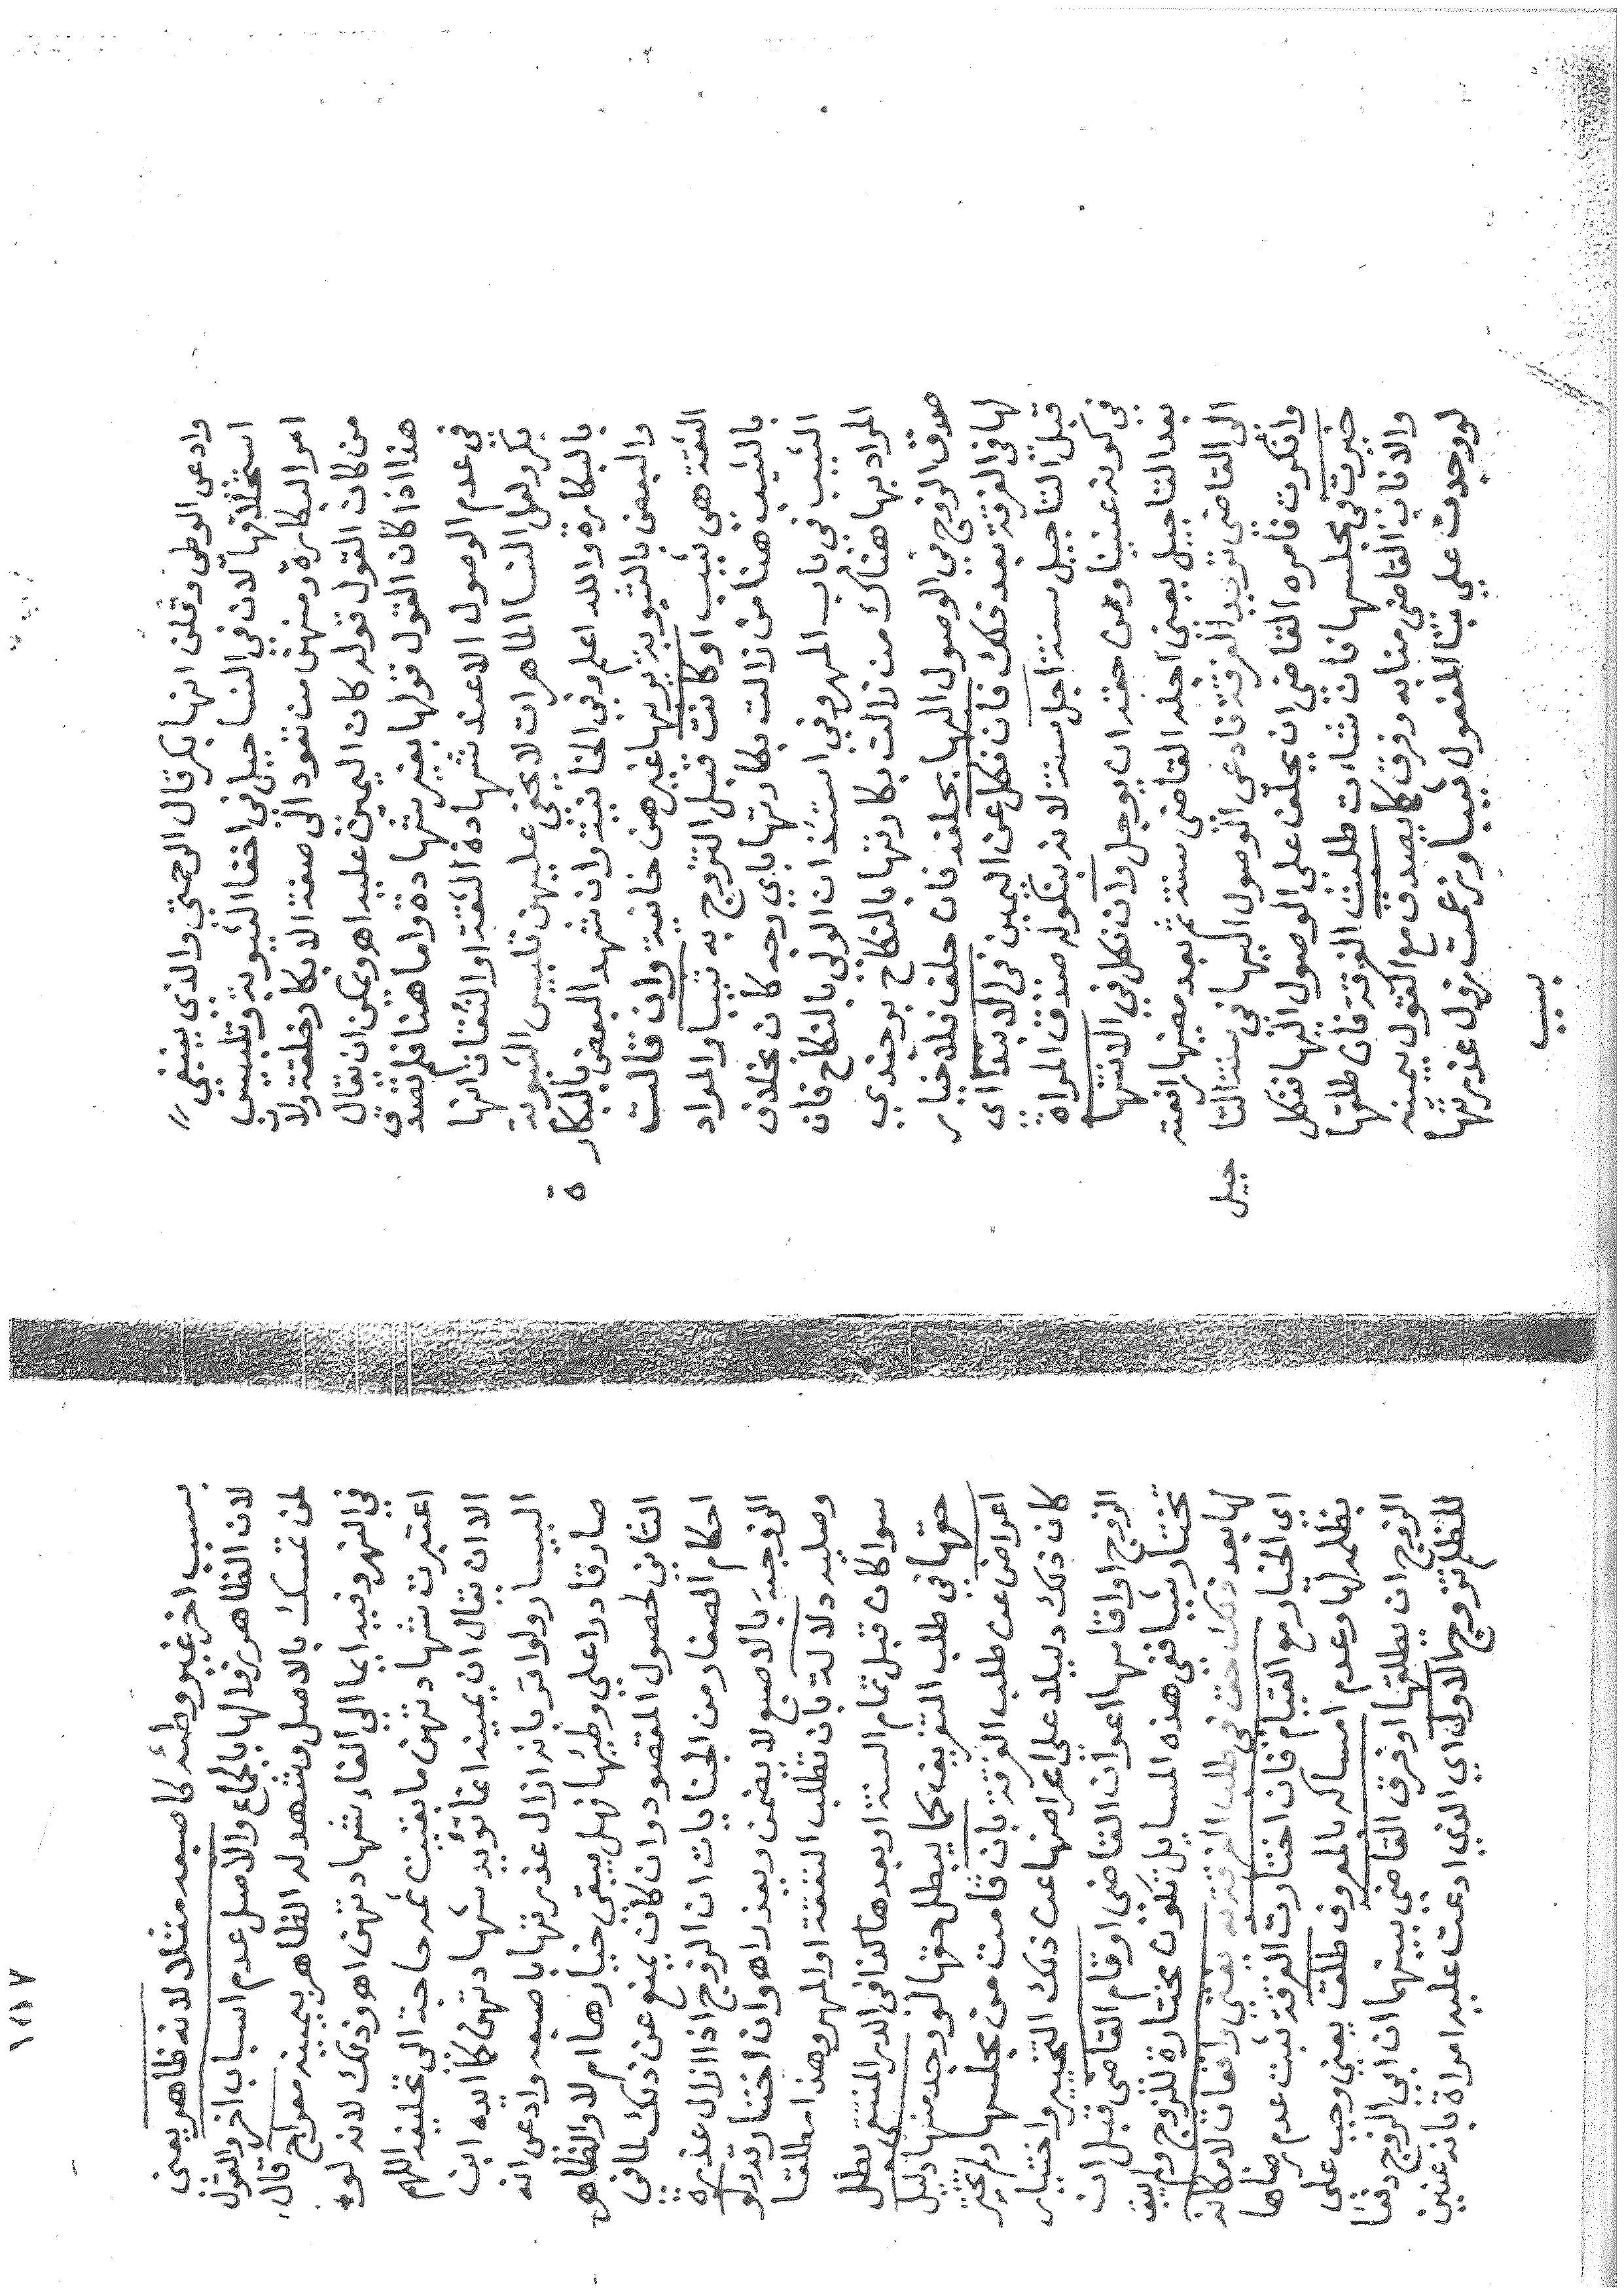 وادعى الوطى وقلن انها بكر قال الرحمتي والذي ينبغي
استحلافها لان في النسا حيل في اخفا الثيوبة وتلبيس
امر البكارة ومنهن من تعود الى صفة الابكار خلقة ولان
من كان القول قوله كان اليمين عليه اهـ ويمكن ان يقال
هذا اذا كان القول قولها بغير شهادة واما هنا فلم تصدق
في عدم الوصول الا عند شهادة الثقة او الثقات انها
بكر ولعل النسا الماهرات لا يخفى عليهن تلبيس الثيوبة
بالبكارة والله اعلم وفي الخانية وان شهد البعض بالبكارة
والبعض بالثيوبة يريها غيرهن خانية وان قالت
الثقة هي ثيب او كانت قبل التزوج به ثيبا والمراد
بالثيب هنا من زالت بكارتها باي وجه كان بخلاف
الثيب في باب المهر وفي استئذان الولي بالنكاح فان
المراد بها هناك من زالت بكارتها بالنكاح برجندي
صدق الزوج في الوصول اليها بحلفه فان حلف فلا خيار
لها في الفرقة بعد ذلك فان نكل عن اليمين في الابتدا اي
قبل التاجيل سنة اجل سنة لانه بنكوله صدق المراة
في كونه عنينا ومن حقه ان يوجل وان نكل في الانتها
بعد التاجيل يعنى اجله القاضي سنة ثم بعد مضيها رافعته
الى القاضي تريد الفرقة فادعى الوصول اليها في سنة التاجيل
وانكرت فامره القاضي ان يحلف على الوصول اليها فنكل
خيرت في مجلسها فان شاءت طلبت الفرقة فان طلقها
والا ناب القاضي منابه وفرق كما يصدق مع القول بيمينه
لو وجدت على بنا المفعول ثيبا وزعمت زوال عذريتها
بسبب
١١١٧
بسبب اخر غير وطئه كاصبعه مثلا لانه ظاهر يعنى
لان الظاهر زوالها بالجماع والاصل عدم اسباب اخر والقول
لمن تمسك بالاصل وشهد له الظاهر بيمينه معراج قال
في النهر وفيه ايما الى الغاء شهادتهن اهـ وذلك لانه لو
اعتبرت شهادتهن ما بقيت ثمه حاجة الى تحليفه اللهم
الا ان يقال ان يمينه انما تؤيد شهادتهن كما ايده ابن
البيسار ولو اقر بانه ازال عذرتها باصبعه وادعى انه
صار قادرا على وطيها فهل يبقى خيارها ام لا والظاهر
الثاني لحصول المقصود وان كان يمنع عن ذلك لما في
احكام الصغار من الجنايات ان الزوج اذا ازال عذرة
الزوجة بالاصبع لا يضمن ويعزر اهـ وان اختارته ولو
وصليه دلالة بان تطلب النفقة او المهر وهذا مطلقا
سوا كان قبل تمام السنة او بعدها كذا في الدر المنتقى بطل
حقها في طلب التفريق كما يبطل حقها لو وجد منها دليل
اعراض عن طلب الفرقة بان قامت من مجلسها ولم تخير
كان ذلك دليلا على اعراضها عن ذلك التخيير واختيار
الزوج او اقامها اعوان القاضي او قام القاضي قبل ان
تختار شيا ففي هذه المسايل تكون مختارة للزوج ولم يبق
لها بعد ذلك حق في طلب الفرقة به يفتى واقعات لامكانه
اي الخيار مع القيام فان اختارت الفرقة ثبت عدم رضاها
بظلمه لها وعدم امساكه بالمعروف طلق يعني وجب على
الزوج ان يطلقها او فرق القاضي بينهما ان ابي الزوج دفعا
للظلم تزوج الاول اي الذي ادعت عليه امراة بانه عنين